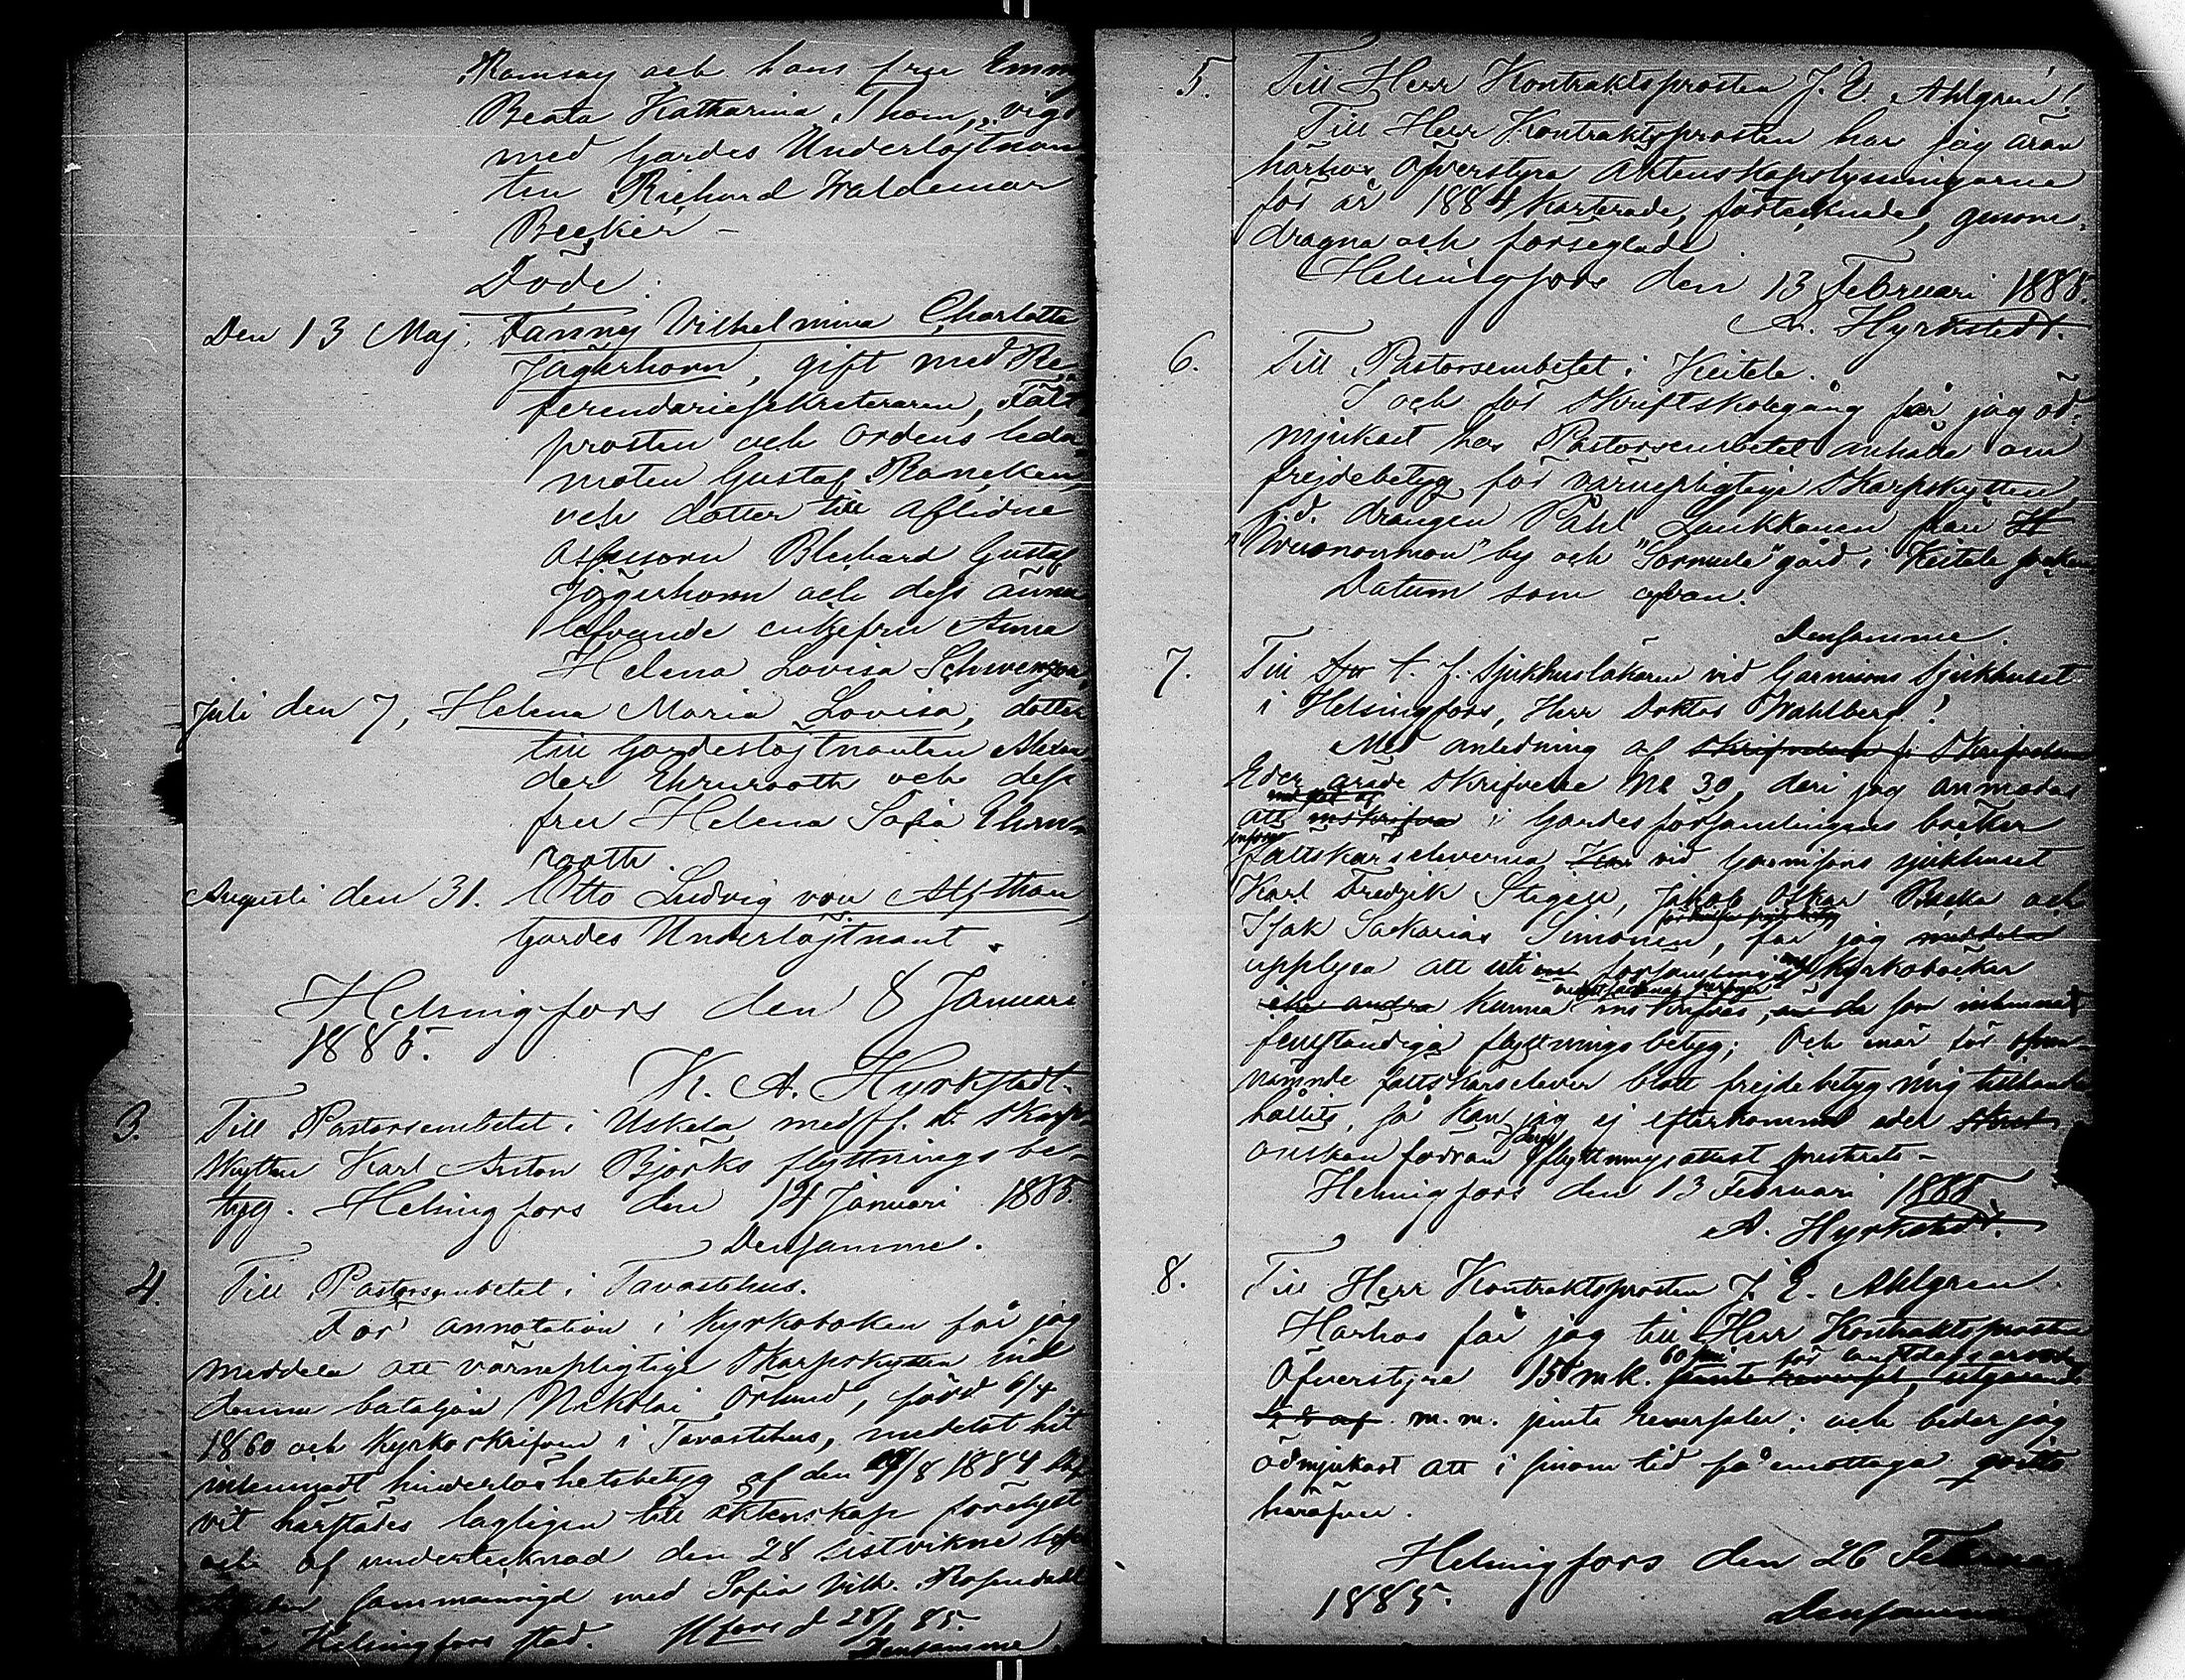 Ramsay och hans fru Emmy
Beata Katharina Thom, vigd
med Gardes Underlöjtnan
ten Richard Waldemar
Becker –
Döde:
Den 13 Maj: Fanny Vilhelmina Charlotta
Jägerhorn, gift med Re-
ferendariesekreteraren, Fält
prosten och Ordens leda-
moten Gustaf Rancken,
och dotter till aflidne
Assessorn Blechard Gustaf
Jägerhorn och dess ännu
lefvande enkefru Anna
Helena Lovisa Schwenzon
Juli den 7, Helena Maria Lovisa, dotter
till Gardeslöjtnanten Alexan
der Ehrnrooth och dess
fru Helena Sofia Ehrn-
rooth.
Augusti den 31. Otto Ludvig von Alfthan,
Gardes Underlöjtnant.
Helsingfors den 8 Januari
1885.
K. A. Hyrkstedt.
3. Till Pastorsembetet i Uskela med f. d. Skarp-
skytten Karl Anton Björks flyttningsbe-
tyg. Helsingfors den 14 Januari 1885
Densamme.
4. Till Pastorsembetet i Tavastehus.
För annotation i kyrkoboken får jag
meddela att värnepligtige Skarpskytten vid
denna bataljon Nikolai Örlund, född 6/4
1860 och kyrkoskrifven i Tavastehus, medelst hit
inlemnadt hinderlöshetsbetyg af den /8 1884
vit härstädes lagligen till äktenskap förelyst
och af undertecknad den 28 sistvikne
sammanvigd med Sofia Vilh. Rosendahl
Helsingfors stad. Hfors d 28/ 85.
Densamme
5. Till Herr Kontraktsprosten J. E. Ahlgren!
Till Herr Kontraktsprosten har jag äran
härhos öfverstyra Äktenskapslysningarne
för år 1884 karterade, förtecknade, genom-
dragna och förseglade
Helsingfors den 13 Februari 1885.
A. Hyrkstedt.
6. Till Pastorsembetet i Keitele.
I och för Skriftskolegång får jag öd-
mjukast hos Pastorsembetet anhålla om
frejdebetyg för värnepligtige Skarpskytten,
f. d. drängen Påhl Laukkanen från
"by och "Sormula" gård i Keitele socken
Datum som ofvan.
Densamme.
7. Till t. f. Sjukhusläkaren vid Garnisons Sjukhuset
i Helsingfors, Herr Doktor Wahlberg!
Med anledning af
Eder ärade Skrifvelse No 30, deri jag anmodas
att inskrifva i Gardesförsamlingens böcker
fältskärseleverna vid Garnisons sjukhuset
Karl Fredrik Stegell, Jakob Oskar Backa och
Isak Sakarias Simonen, får jag meddela
upplysa att uti en församlings kyrkoböcker
icke andra kunna inskrifvas, än de som inlemnat
fullständiga flyttningsbetyg; Och när för ofvan-
nämnde fältskärselever blott frejdebetyg mig tillhanda
hållits, så kan jag ej efterkomma eder
önskan förrän flyttningsattest presterats –
Helsingfors den 13 Februari 1885.
A. Hyrkstedt.
8. Till Herr Kontraktsprosten J. E. Ahlgren.
Härhos får jag till Herr Kontraktsprosten
60 för
Öfverstyra 150 mk. jemte reversal, utgörande
m. m. jemte reversaler; och beder jag
ödmjukast att i sinom tid få emottaga qvitto
häröfver.
Helsingfors den 26 Februari
1885.
Densamme